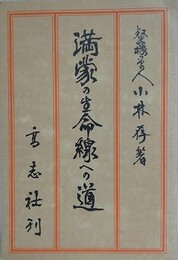 小林存著
満蒙の生命線への道
高志社刊